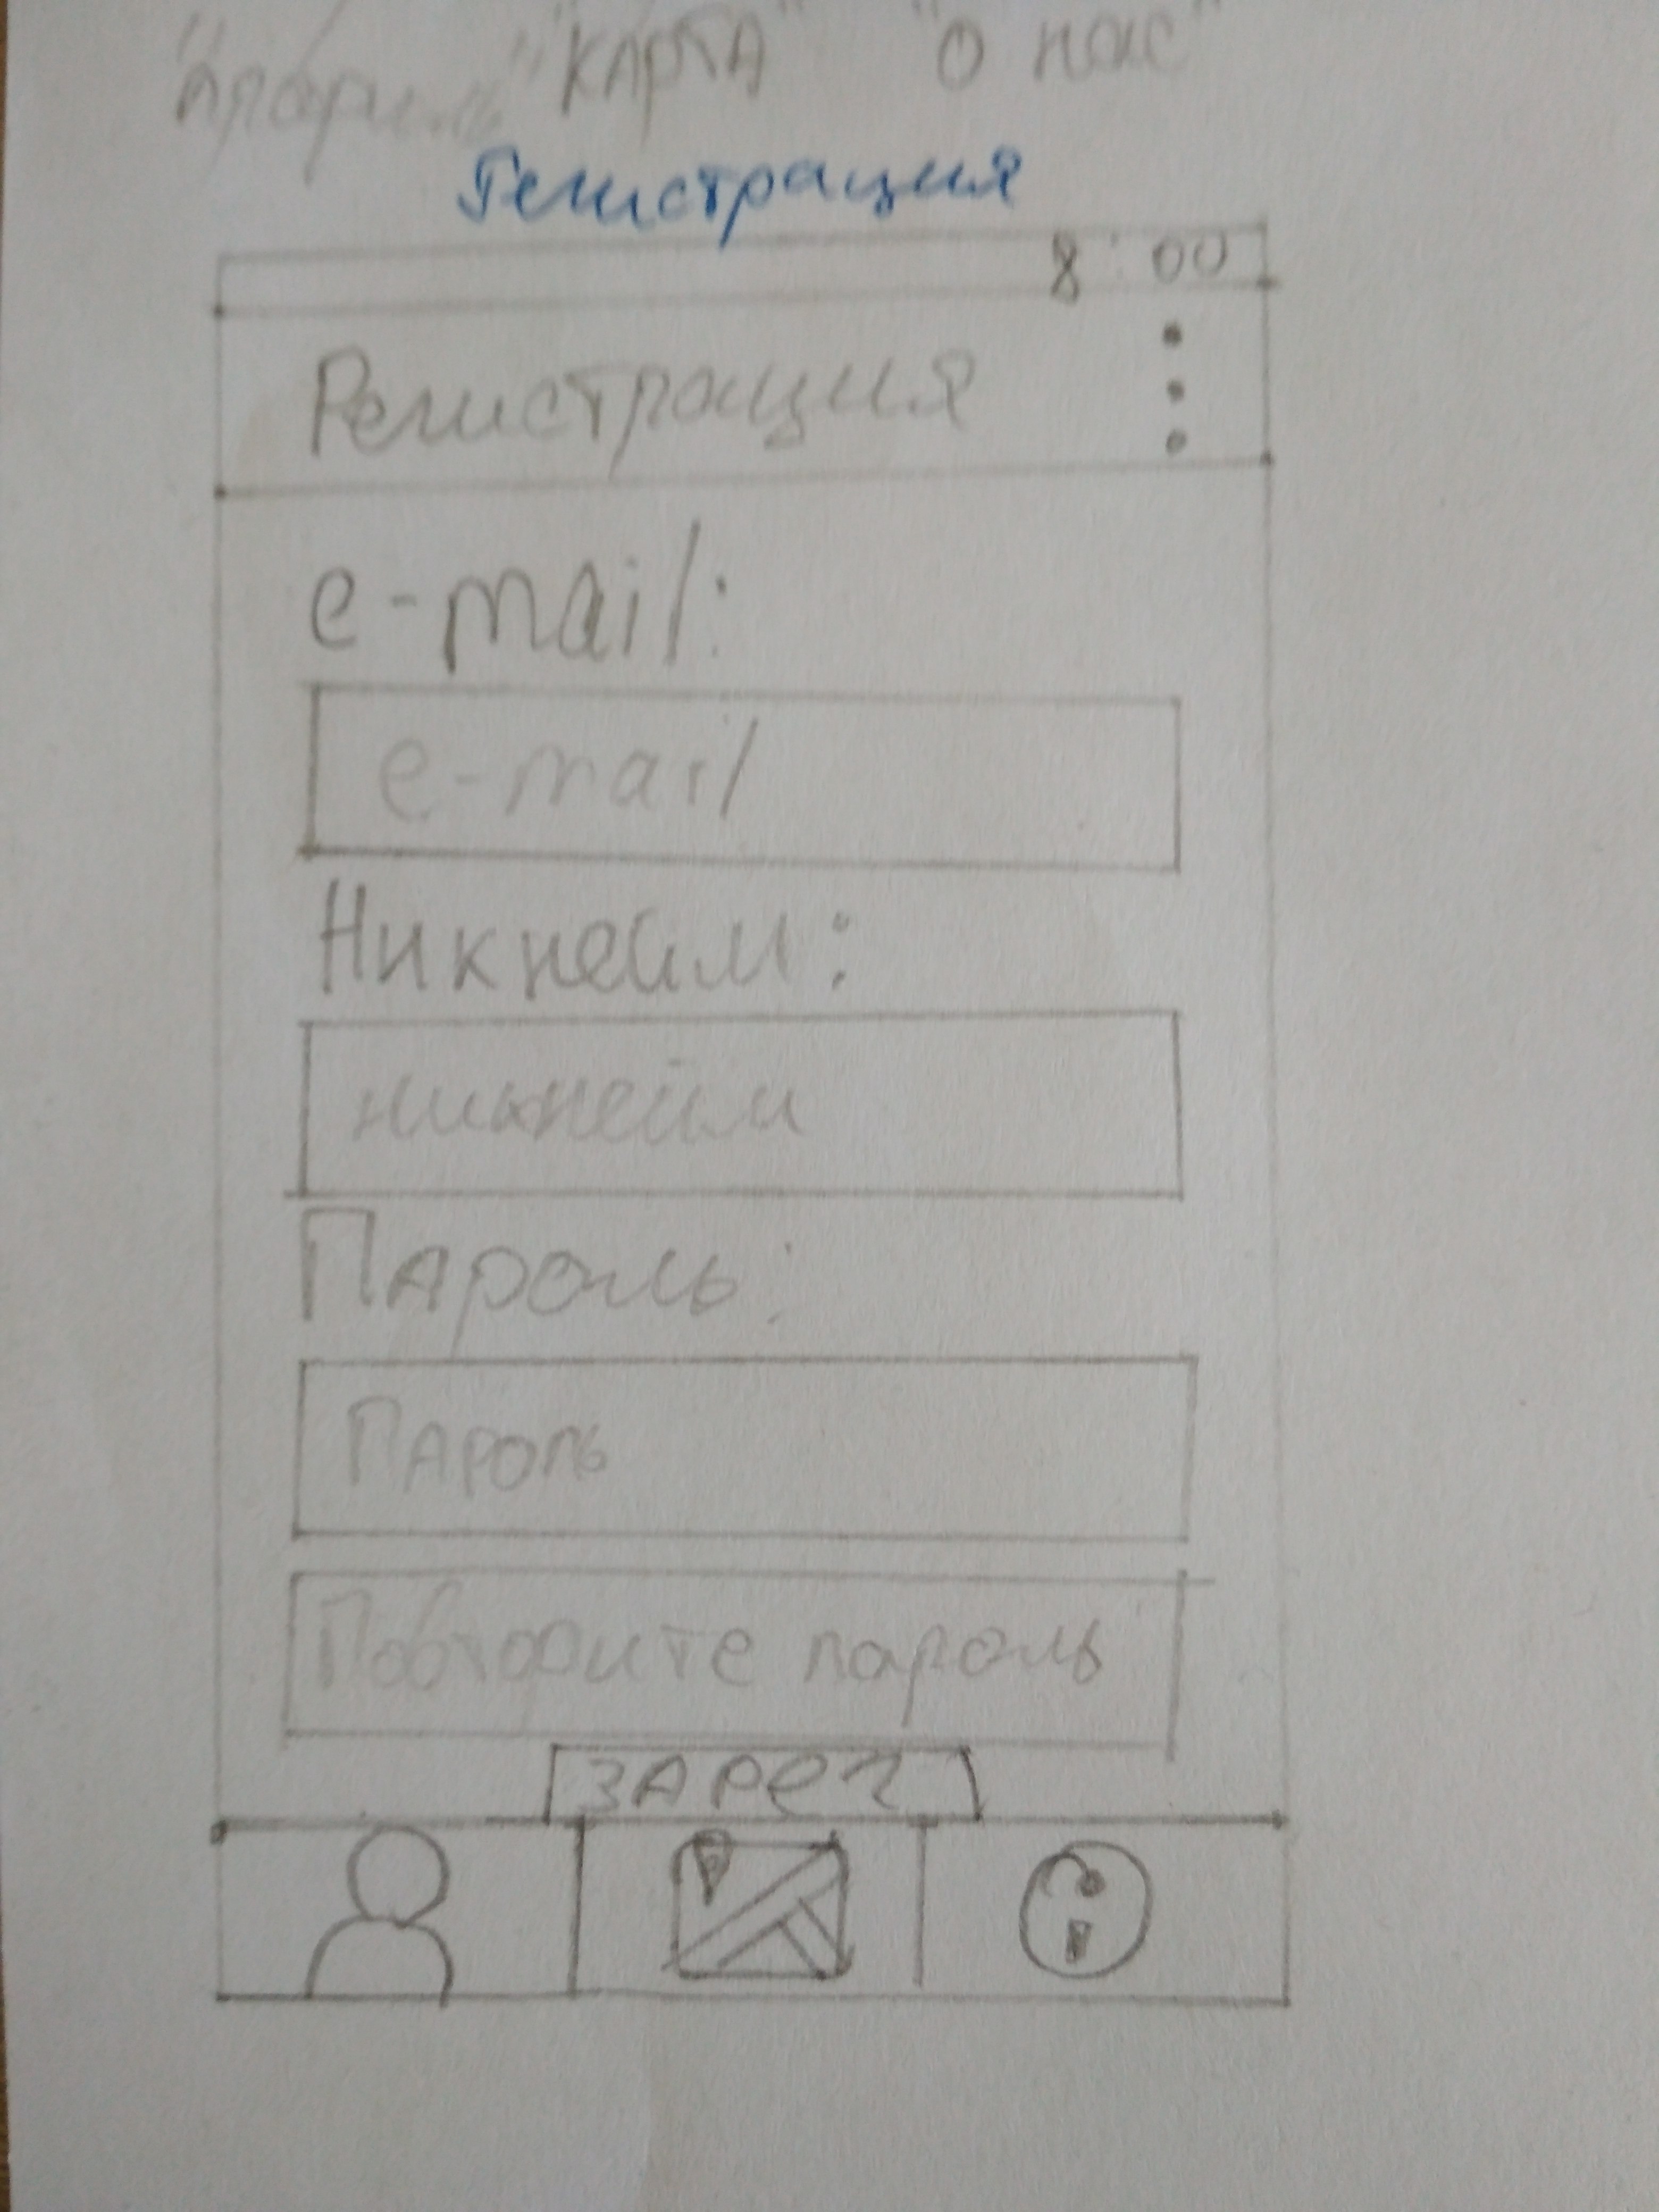 "Профиль" "КАРТА" "О нас"
Регистрация
8:00
Регистрация
e-mail:
e-mail
Никнейм:
никнейм
Пароль:
Пароль
Повторите пароль
ЗАРЕГ